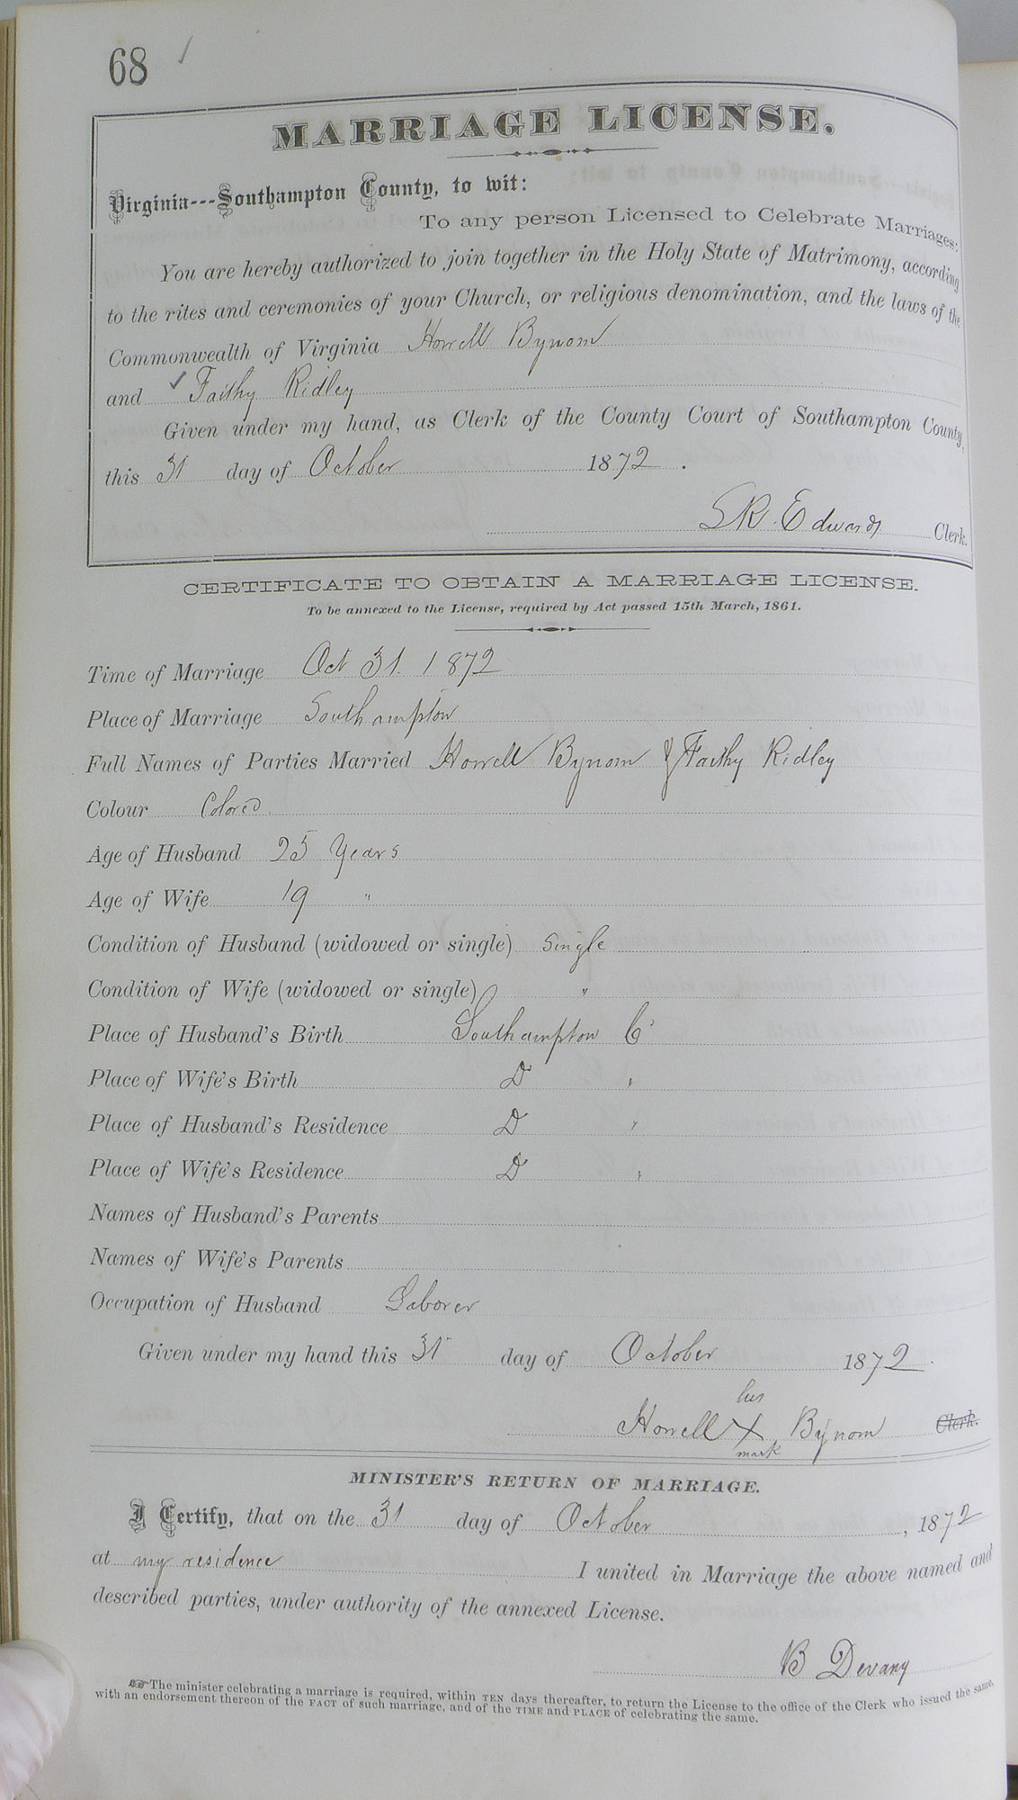 68 ✓
MARRIAGE LICENSE.
Virginia---Southampton County, to wit:
To any person Licensed to Celebrate Marriages:
You are hereby authorized to join together in the Holy State of Matrimony, according
to the rites and ceremonies of your Church, or religious denomination, and the laws of the
Commonwealth of Virginia Howell Bynom
and ✓ Faithy Ridley
Given under my hand, as Clerk of the County Court of Southampton County,
this 31 day of October 1872.
S R. Edwards Clerk.
CERTIFICATE TO OBTAIN A MARRIAGE LICENSE.
To be annexed to the License, required by Act passed 15th March, 1861.
Time of Marriage Oct 31. 1872
Place of Marriage Southampton
Full Names of Parties Married Howell Bynom & Faithy Ridley
Colour Colored
Age of Husband 25 Years
Age of Wife 19 "
Condition of Husband (widowed or single) Single
Condition of Wife (widowed or single) "
Place of Husband's Birth Southampton Co
Place of Wife's Birth D "
Place of Husband's Residence D "
Place of Wife's Residence D "
Names of Husband's Parents
Names of Wife's Parents
Occupation of Husband Laborer
Given under my hand this 31 day of October 1872.
his
Howell X Bynom Clerk.
mark
MINISTER'S RETURN OF MARRIAGE.
I Certify, that on the 31 day of October, 1872
at my residence I united in Marriage the above named and
described parties, under authority of the annexed License.
B Devany
☞ The minister celebrating a marriage is required, within TEN days thereafter, to return the License to the office of the Clerk who issued the same,
with an endorsement thereon of the FACT of such marriage, and of the TIME and PLACE of celebrating the same.